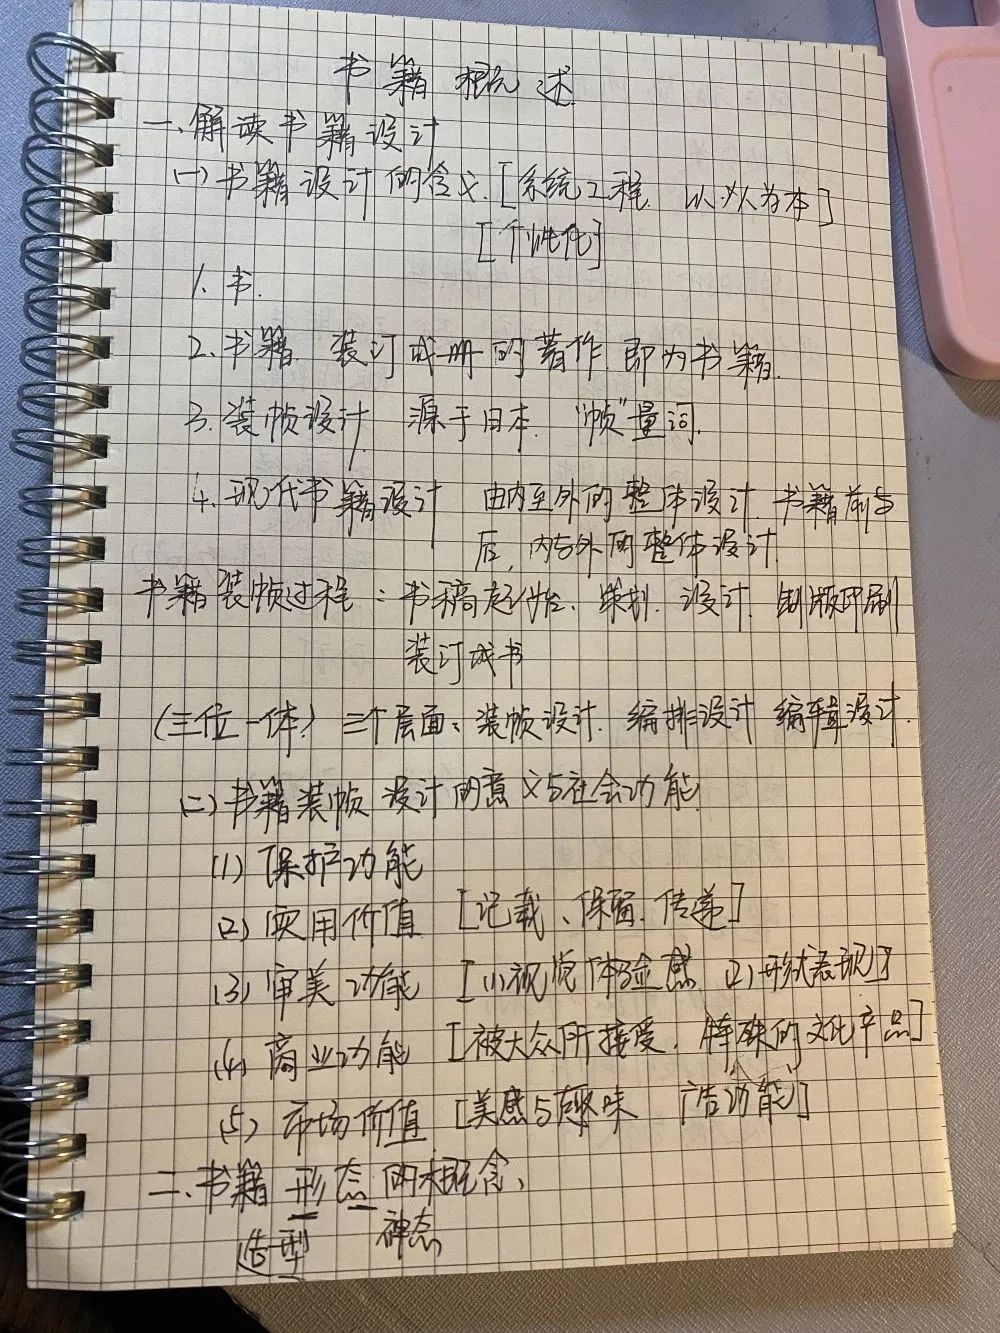 书籍概述
一、解读书籍设计
(一)书籍设计的含义.[系统工程. 以人为本]
[个性化]
1. 书.
2. 书籍. 装订成册的著作. 即为书籍.
3. 装帧设计 源于日本. “帧”量词.
4. 现代书籍设计 由内至外的整体设计. 书籍前与
后, 内与外的整体设计.
书籍装帧过程: 书稿起始、策划. 设计. 制版印刷
装订成书
(三位一体) 三个层面: 装帧设计. 编排设计 编辑设计.
(二)书籍装帧设计的意义与社会功能
(1) 保护功能
(2) 实用价值 [记载、保留. 传递]
(3) 审美功能 [(1)视觉体验感 (2)形式表现]
(4) 商业功能 [被大众所接受. 特殊的文化产品]
(5) 市场价值 [美感与趣味 广告功能]
二、书籍形态的概念、
造型 神态